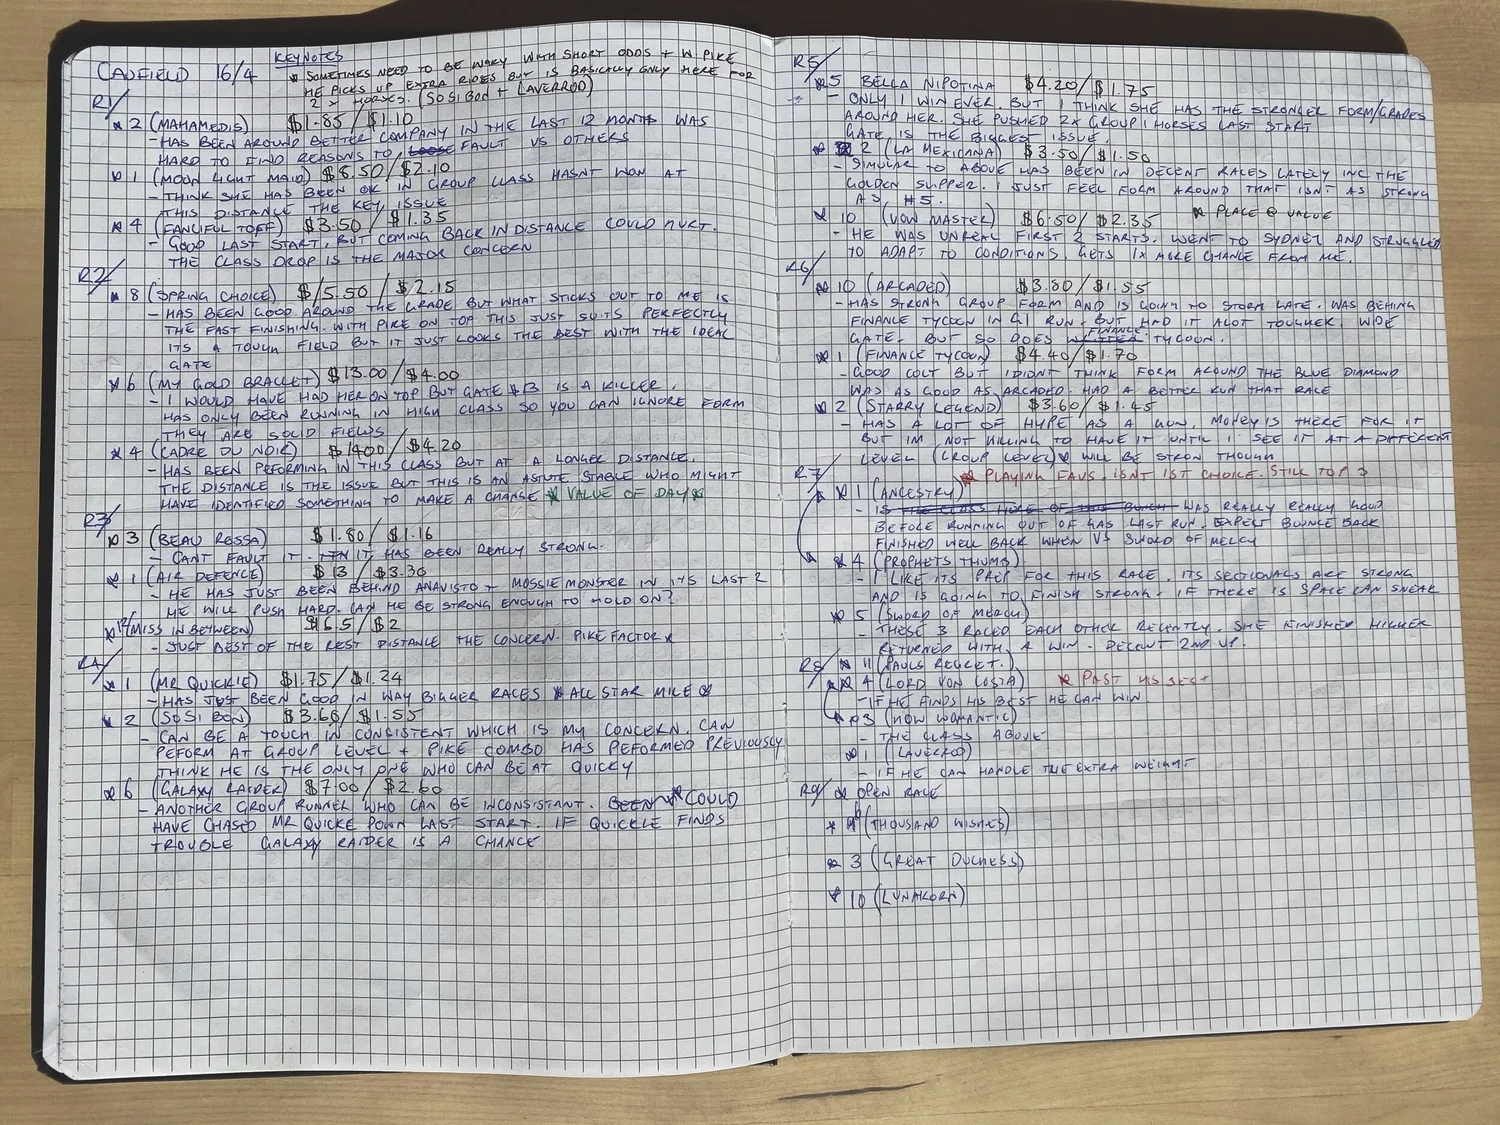 KEYNOTES
CAUFIELD 16/4
* SOMETIMES NEED TO BE WARY WITH SHORT ODDS + W. PIKE
HE PICKS UP EXTRA RIDES BUT IS BASICALLY ONLY HERE FOR
2 x HORSES. (SO SI BON + LAVERROD)
R1/
* 2 (MAHAMEDIS) $1.85/$1.10
- HAS BEEN AROUND BETTER COMPANY IN THE LAST 12 MONTH WAS
HARD TO FIND REASONS TO FAULT VS OTHERS
* 1 (MOON LIGHT MAID) $8.50/$2.10
- THINK SHE HAS BEEN OK IN GROUP CLASS HASNT WON AT
THIS DISTANCE THE KEY ISSUE
* 4 (FANCIFUL TOFF) $3.50/$1.35
- GOOD LAST START, BUT COMING BACK IN DISTANCE COULD HURT.
THE CLASS DROP IS THE MAJOR CONCERN
R2/
* 8 (SPRING CHOICE) $5.50/$2.15
- HAS BEEN GOOD AROUND THE GRADE BUT WHAT STICKS OUT TO ME IS
THE FAST FINISHING. WITH PIKE ON TOP THIS JUST SUITS PERFECTLY
ITS A TOUGH FIELD BUT IT JUST LOOKS THE BEST WITH THE IDEAL
GATE
* 6 (MY GOLD BRACLET) $13.00/$4.00
- I WOULD HAVE HAD HER ON TOP BUT GATE 13 IS A KILLER.
HAS ONLY BEEN RUNNING IN HIGH CLASS SO YOU CAN IGNORE FORM
THEY ARE SOLID FIELDS
* 4 (CADRE DU NOIR) $1400/$4.20
- HAS BEEN PEFORMING IN THIS CLASS BUT AT A LONGER DISTANCE.
THE DISTANCE IS THE ISSUE BUT THIS IS AN ASTUTE STABLE WHO MIGHT
HAVE IDENTIFIED SOMETHING TO MAKE A CHANGE * VALUE OF DAY *
R3/
* 3 (BEAU ROSSA) $1.80/$1.16
- CANT FAULT IT. IT HAS BEEN REALLY STRONG.
* 1 (AIR DEFENCE) $13/$3.30
- HE HAS JUST BEEN BEHIND ANAVISTO + MOSSIE MONSTER IN ITS LAST 2
HE WILL PUSH HARD. CAN HE BE STRONG ENOUGH TO HOLD ON?
* 12 (MISS IN BETWEEN) $6.5/$2
- JUST BEST OF THE REST DISTANCE THE CONCERN. PIKE FACTOR *
R4/
* 1 (MR QUICKIE) $1.75/$1.24
- HAS JUST BEEN GOOD IN WAY BIGGER RACES * ALL STAR MILE *
* 2 (SO SI BON) $3.60/$1.55
- CAN BE A TOUCH IN CONSISTENT WHICH IS MY CONCERN. CAN
PEFORM AT GROUP LEVEL + PIKE COMBO HAS PEFORMED PREVIOUSLY
THINK HE IS THE ONLY ONE WHO CAN BEAT QUICKY
* 6 (GALAXY RAIDER) $7.00/$2.60
- ANOTHER GROUP RUNNER WHO CAN BE INCONSISTANT. * COULD
HAVE CHASED MR QUICKE DOWN LAST START. IF QUICKLE FINDS
TROUBLE GALAXY RAIDER IS A CHANCE
R5/
* 5 BELLA NIPOTINA $4.20/$1.75
- ONLY 1 WIN EVER. BUT I THINK SHE HAS THE STRONGER FORM/GRADES
AROUND HER. SHE PUSHED 2x GROUP 1 HORSES LAST START
GATE IS THE BIGGEST ISSUE.
* 2 (LA MEXICANA) $3.50/$1.50
- SIMULAR TO ABOVE HAS BEEN IN DECENT RACES LATELY INC THE
GOLDEN SLIPPER. I JUST FEEL FORM AROUND THAT ISNT AS STRONG
AS #5.
* 10 (VOW MASTER) $6.50/$2.35 * PLACE @ VALUE
- HE WAS UNREAL FIRST 2 STARTS. WENT TO SYDNEY AND STRUGGLED
TO ADAPT TO CONDITIONS. GETS 1x MORE CHANCE FROM ME.
R6/
* 10 (ARCADED) $3.80/$1.55
- HAS STRONG GROUP FORM AND IS GOING TO STORM LATE. WAS BEHIND
FINANCE TYCOON IN G1 RUN. BUT HAD IT ALOT TOUGHER. WIDE
GATE. BUT SO DOES FINANCE TYCOON.
* 1 (FINANCE TYCOON) $4.40/$1.70
- GOOD COLT BUT I DIDNT THINK FORM AROUND THE BLUE DIAMOND
WAS AS GOOD AS ARCADED. HAD A BETTER RUN THAT RACE
* 2 (STARRY LEGEND) $3.60/$1.45
- HAS A LOT OF HYPE AS A GUN. MONEY IS THERE FOR IT
BUT IM NOT WILLING TO HAVE IT UNTIL I SEE IT AT A DIFFERENT
LEVEL (GROUP LEVEL) * WILL BE STRON THOUGH
R7/
* PLAYING FAVS. ISNT 1ST CHOICE. STILL TOP 3
* 1 (ANCESTRY)
- WAS REALLY REALLY GOOD
BEFORE RUNNING OUT OF GAS LAST RUN. EXPECT BOUNCE BACK
FINISHED WELL BACK WHEN VS SWORD OF MERCY
* 4 (PROPHETS THUMB)
- I LIKE ITS PREP FOR THIS RACE. ITS SECTIONALS ARE STRONG
AND IS GOING TO FINISH STRONG. IF THERE IS SPACE CAN SNEAK
* 5 (SWORD OF MERCY)
- THESE 3 RACED EACH OTHER RECENTLY. SHE FINISHED HIGHER
RETURNED WITH A WIN. DECENT 2ND UP.
R8/ * 11 (PAULS REGRET.)
* 4 (LORD VON COSTA) * PAST HIS BEST
- IF HE FINDS HIS BEST HE CAN WIN
* 3 (HOW WOMANTIC)
- THE CLASS ABOVE
* 1 (LAVERROD)
- IF HE CAN HANDLE THE EXTRA WEIGHT
R9/ * OPEN RACE
* (THOUSAND WISHES)
* 3 (GREAT DUCHESS)
* 10 (LUNAKORN)